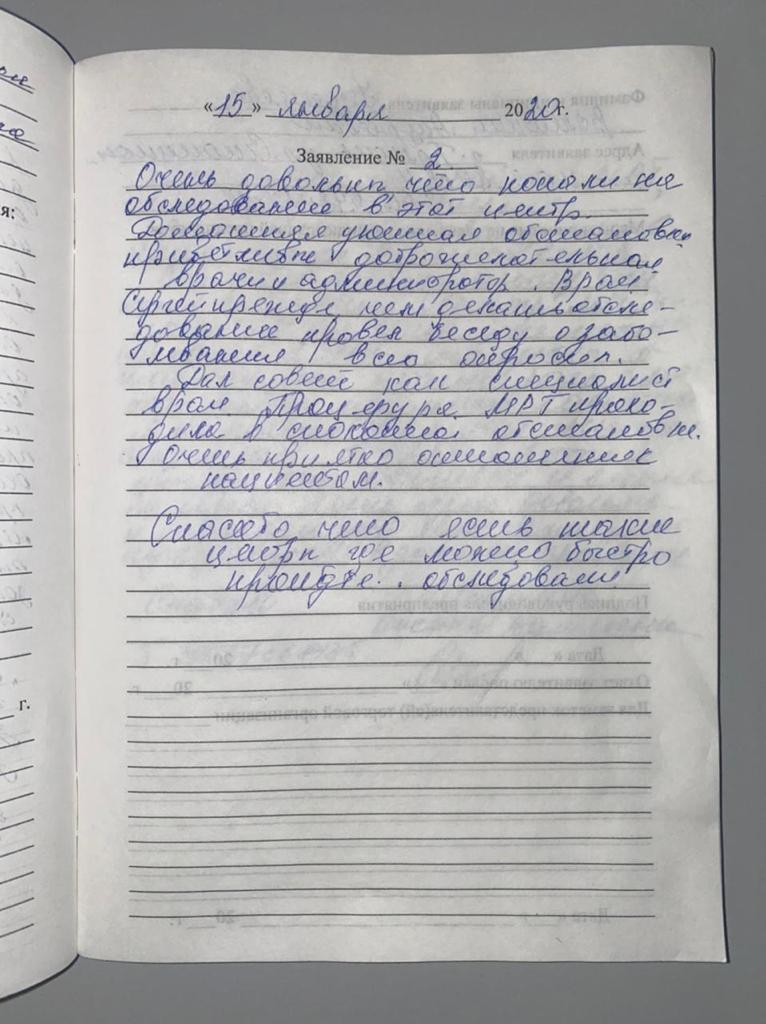 «15» января 2020г.
Заявление № 2
Очень довольны что попали на
обследование в этот центр.
Домашняя уютная обстановка
приветливые доброжелательная
врачи и администротор. Врач
Сергей прежде чем делать обсле-
дование провел беседу о забо-
левании
Дал совет как специалист
врач. Процедура МРТ прохо-
дила в спокойной обстановке.
Очень приятно отношение к
пациентам.
Спасибо что есть такие
центры где можно быстро
пройти обследование
г.